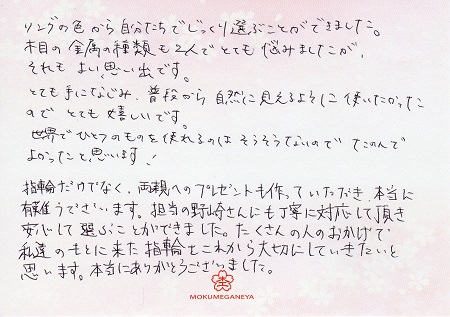 リングの色から自分たちでじっくり選ぶことができました。
木目の金属の種類も2人でとても悩みましたが、
それも よい思い出です。
とても手になじみ、普段から自然に見えるように使いたかった
ので とても嬉しいです。
世界でひとつのものを使れるのは そうそうないので たのんで
よかったと思います!
指輪だけでなく、両親へのプレゼントも作っていただき、本当に
有難うございます。担当の野崎さんにも丁寧に対応して頂き
安心して選ぶことができました。たくさんの人のおかげで
私達のもとに来た指輪をこれから大切にしていきたいと
思います。本当にありがとうございました。
MOKUMEGANEYA